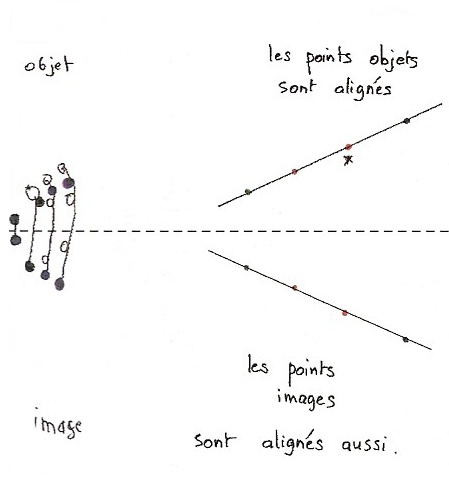 objet
les points objets
sont alignés
x
les points
images
image
sont alignés aussi.